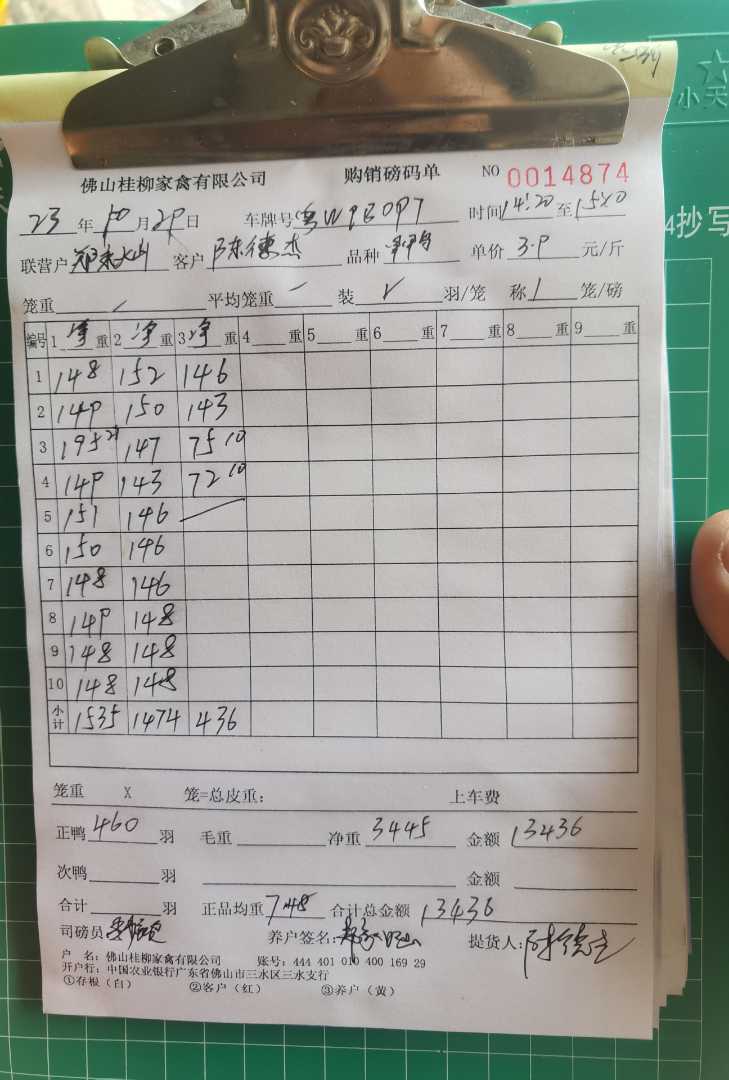 小天
4抄写
佛山桂柳家禽有限公司 购销磅码单 NO 0014874
23年10月29日 车牌号粤W9E097 时间14:20至15:20
联营户 客户陈德杰 品种 单价3.9元/斤
笼重 平均笼重 装 羽/笼 称1笼/磅
编号 1净重 2净重 3净重 4重 5重 6重 7重 8重 9重
1 148 152 146
2 149 150 143
3 195 147 75 10
4 149 143 72 10
5 151 146
6 150 146
7 148 146
8 149 148
9 148 148
10 148 148
小计 1535 1474 436
笼重 X 笼=总皮重: 上车费
正鸭460羽 毛重 净重3445 金额13436
次鸭 羽 金额
合计 羽 正品均重7.48 合计总金额13436
司磅员 养户签名: 提货人:陈德杰
户 名: 佛山桂柳家禽有限公司 账号: 444 401 010 400 169 29
开户行: 中国农业银行广东省佛山市三水区三水支行
①存根(白) ②客户(红) ③养户(黄)